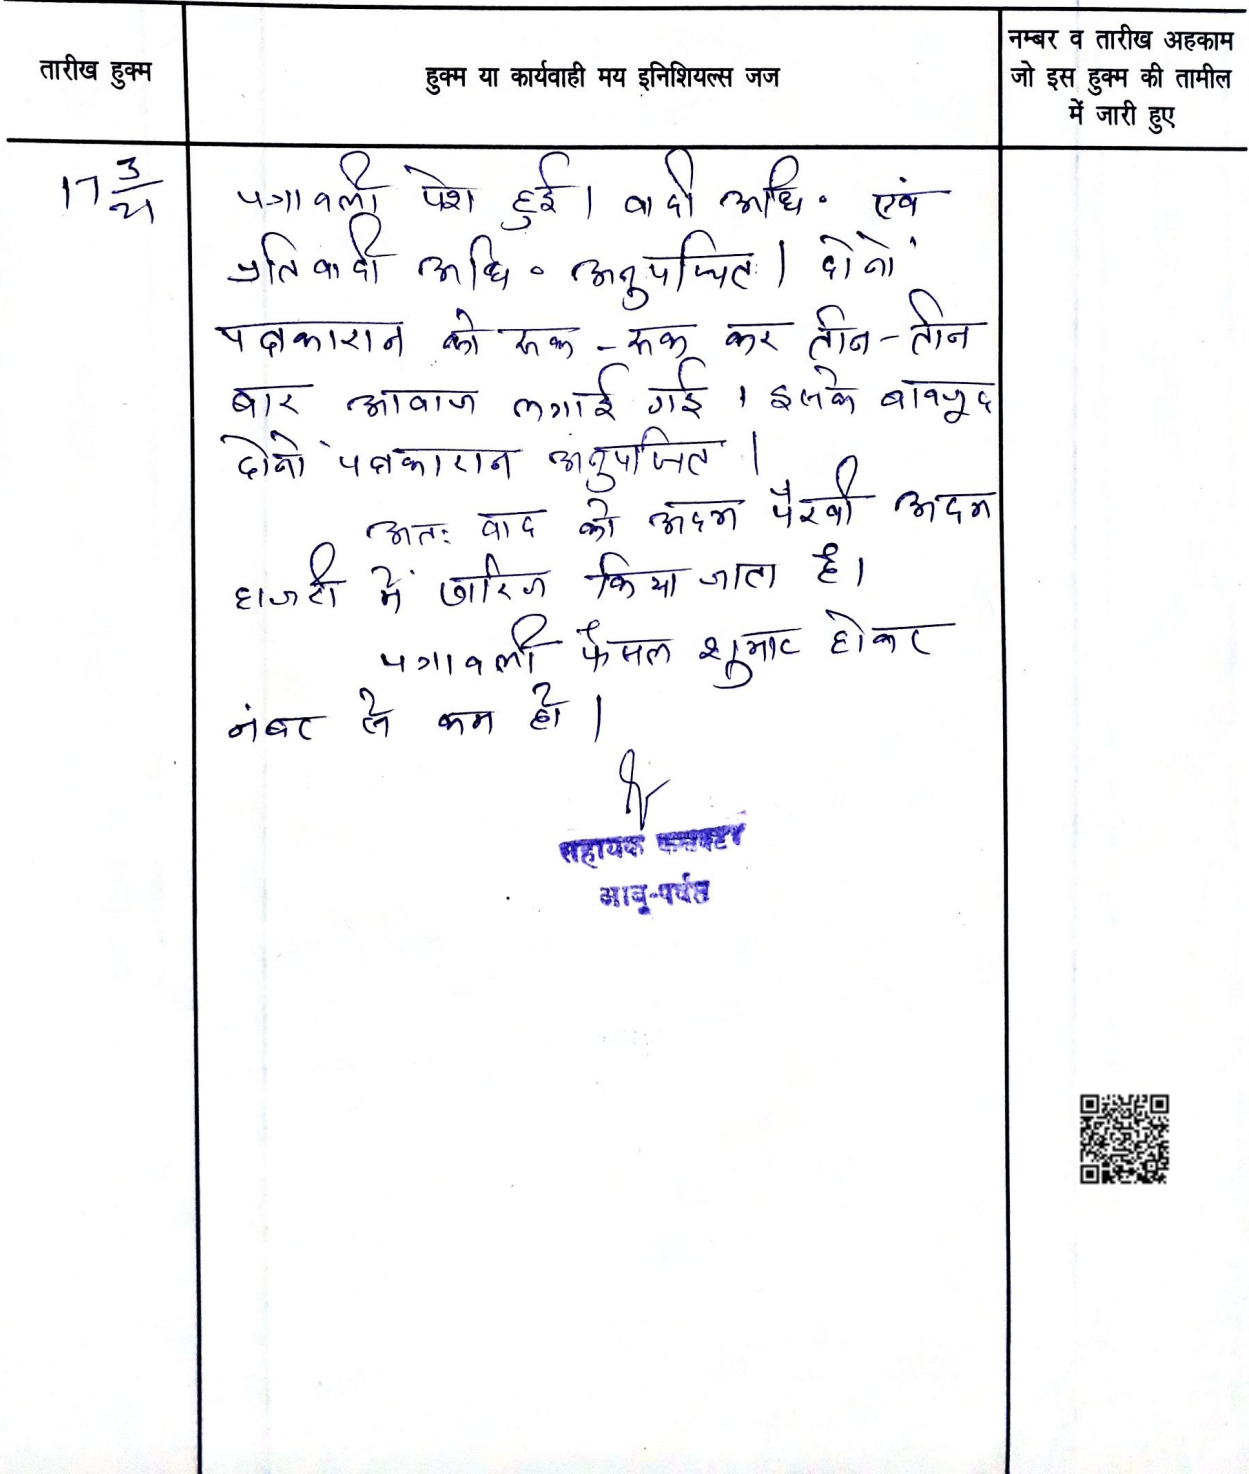 तारीख हुक्म
हुक्म या कार्यवाही मय इनिशियल्स जज
नम्बर व तारीख अहकाम
जो इस हुक्म की तामील
में जारी हुए
17 3/21
पत्रावली पेश हुई। वादी अधि॰ एवं
प्रतिवादी अधि॰ अनुपस्थित। दोनों
पक्षकारान को रूक-रूक कर तीन-तीन
बार आवाज लगाई गई। इसके बावजूद
दोनों पक्षकारान अनुपस्थित।
अतः वाद को अदम पैरवी अदम
हाजरी में खारिज किया जाता है।
पत्रावली फैसल शुमार होकर
नंबर से कम हो।
सहायक कलक्टर
आबू-पर्वत